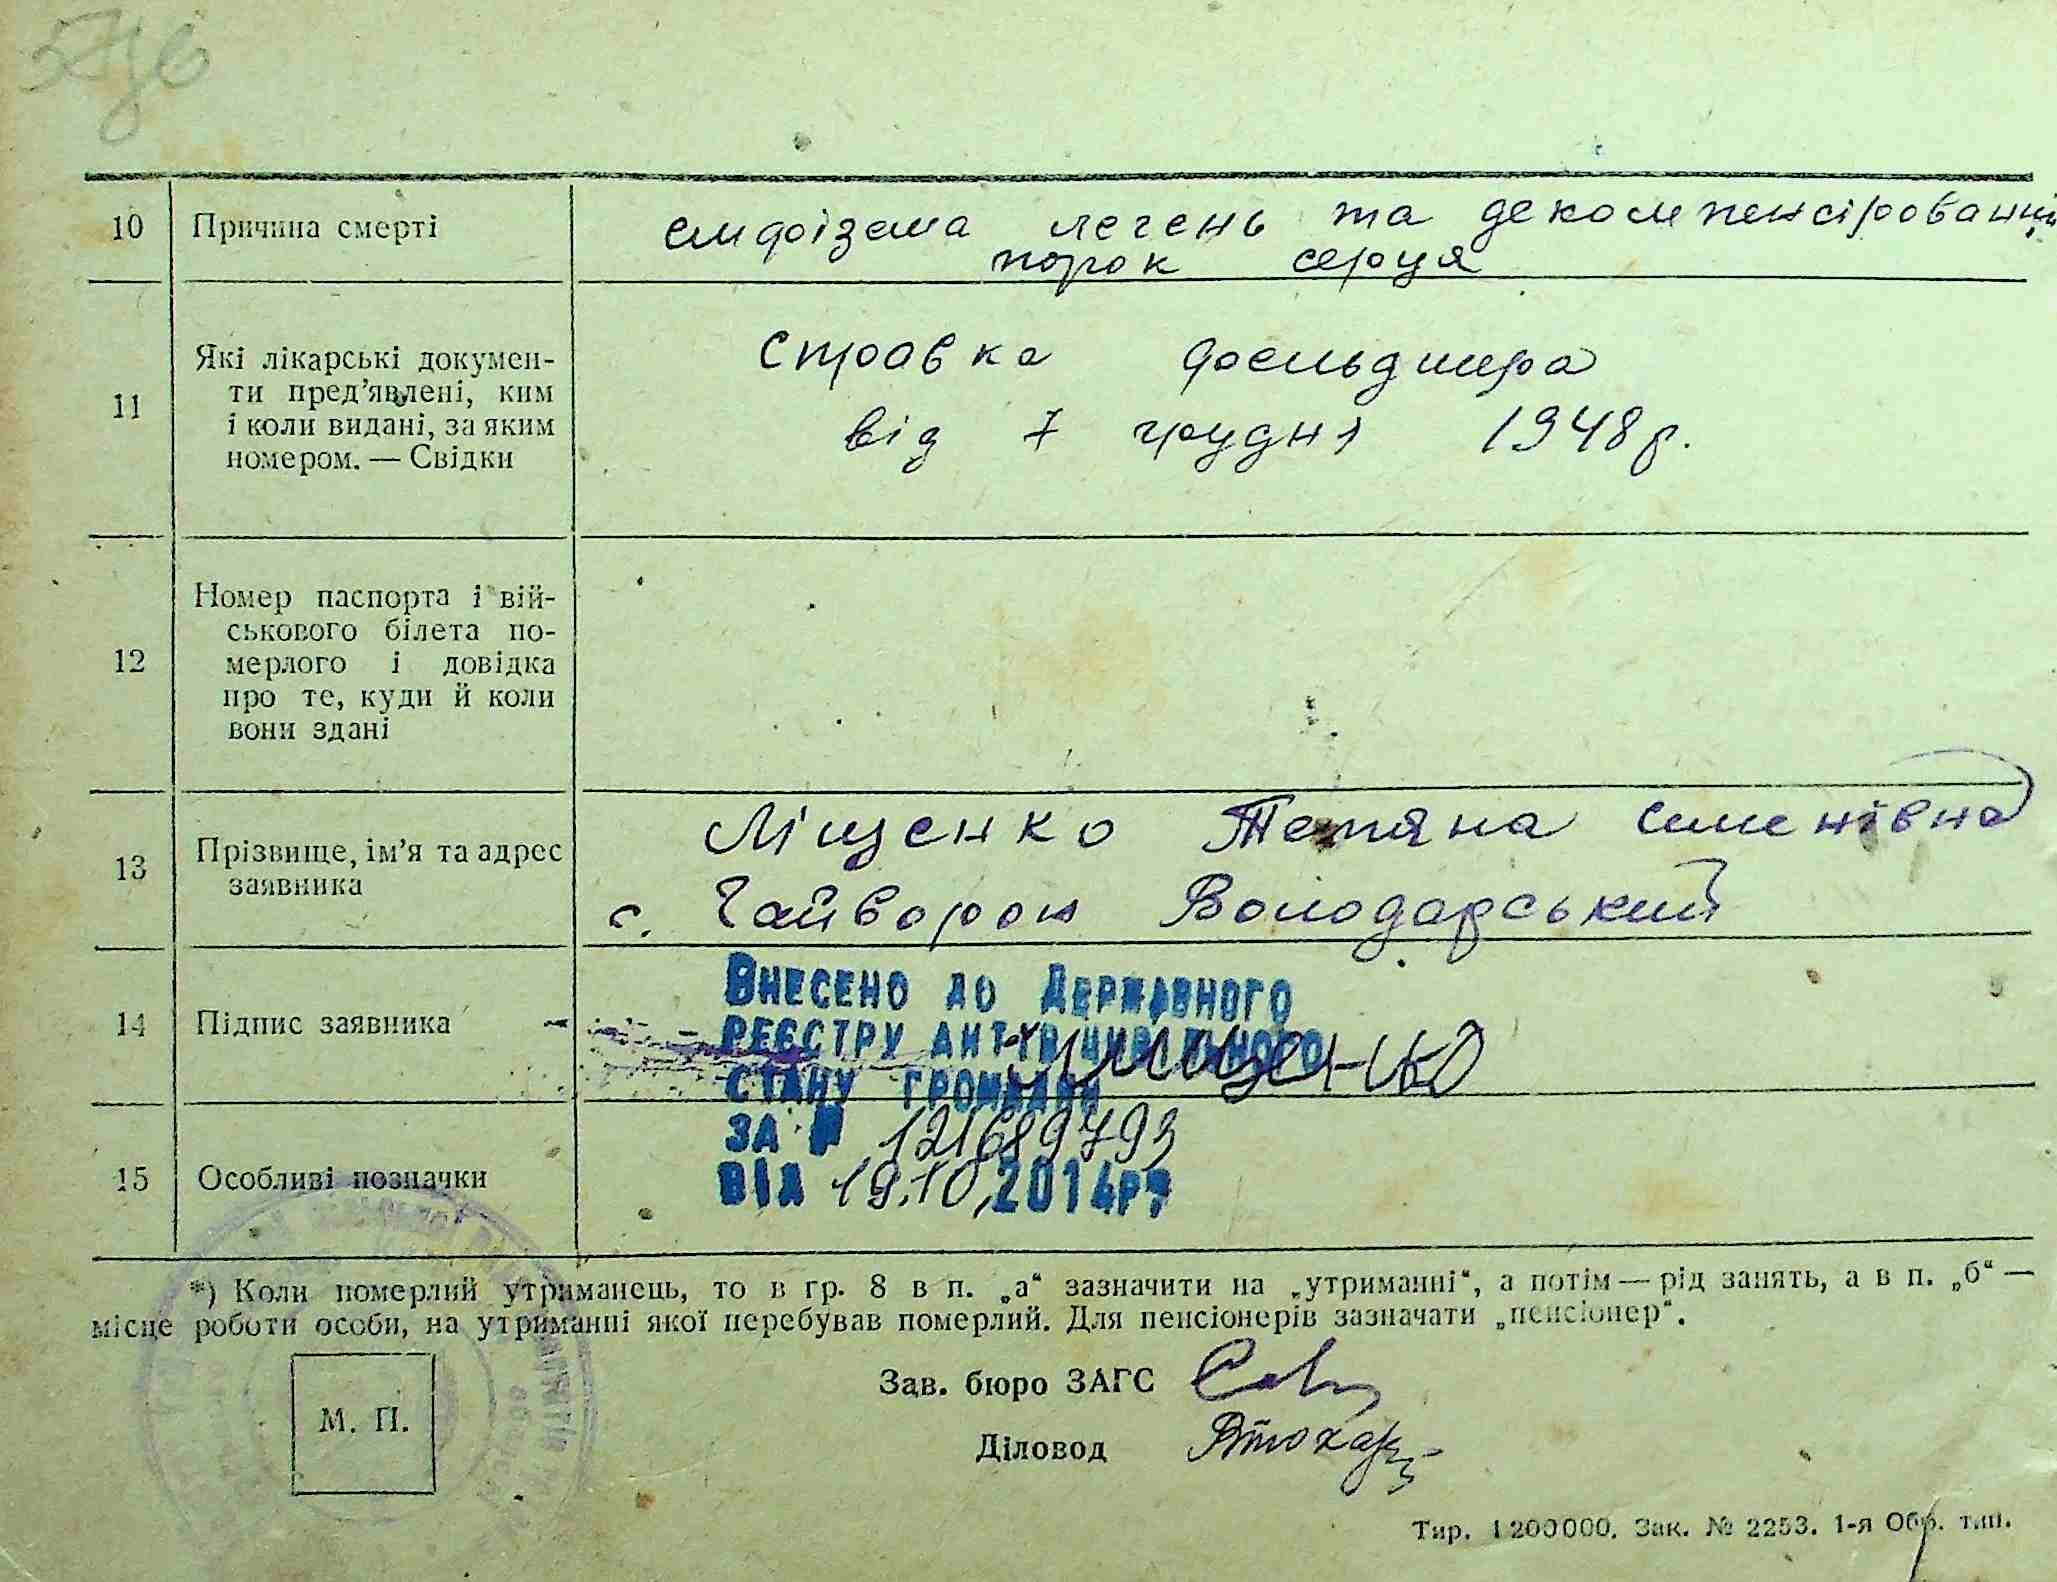 10 Причина смерті емфізема легень та декомпенсірований
порок серця
11 Які лікарські докумен-
ти пред'явлені, ким
і коли видані, за яким
номером. — Свідки
справка фельдшера
від 7 грудня 1948 р.
12 Номер паспорта і вій-
ськового білета по-
мерлого і довідка
про те, куди й коли
вони здані
13 Прізвище, ім'я та адрес
заявника
Міщенко Тетяна Семенівна
с. Гайворон Володарський
14 Підпис заявника
Внесено до Державного
реєстру актів цивільного
стану громадян
за № 121689793
від 19.10.2014 р.
15 Особливі позначки
*) Коли померлий утриманець, то в гр. 8 в п. „а“ зазначити на „утриманні“, а потім — рід занять, а в п. „б“ —
місце роботи особи, на утриманні якої перебував померлий. Для пенсіонерів зазначати „пенсіонер“.
М. П.
Зав. бюро ЗАГС
Діловод
Тир. 1200000. Зак. № 2253. 1-я Обр. тип.